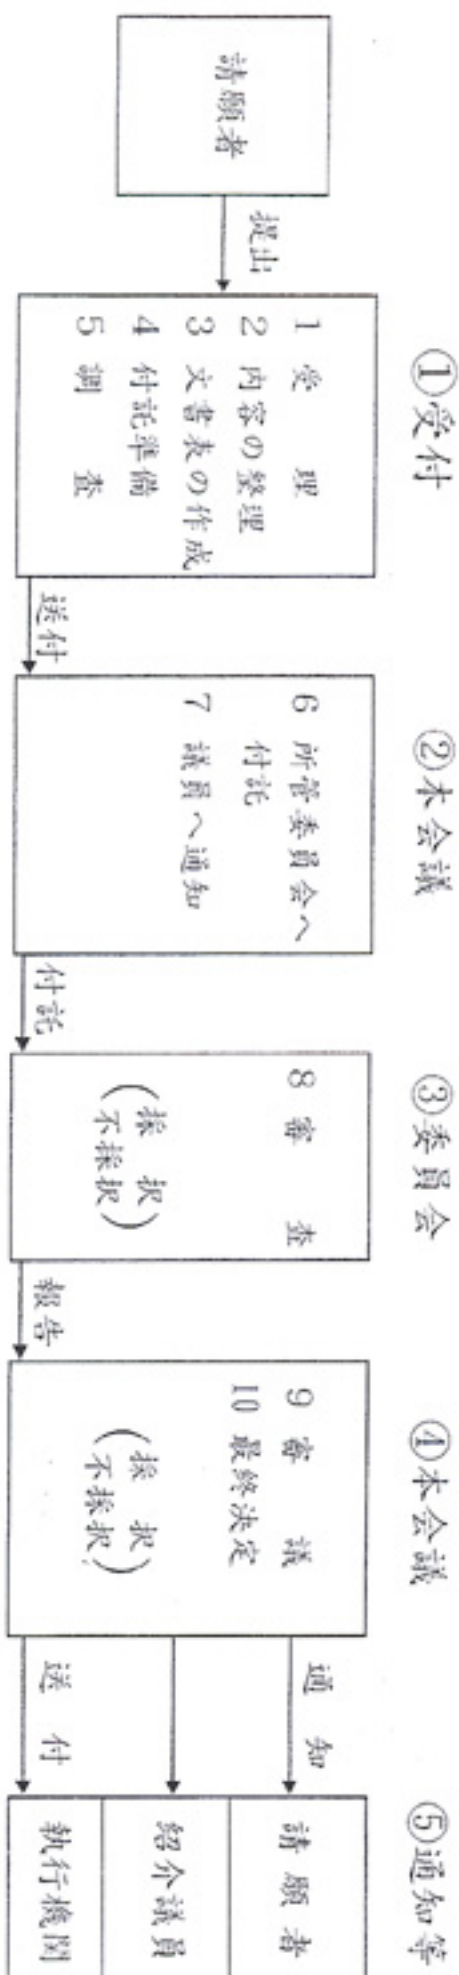 請願者
提出
①受付
1 受理
2 内容の整理
3 文書表の作成
4 付託準備
5 調査
送付
②本会議
6 所管委員会へ
付託
7 議員へ通知
付託
③委員会
8 審査
(採択
不採択)
報告
④本会議
9 審議
10 最終決定
(採択
不採択)
通知
送付
⑤通知等
請願者
紹介議員
執行機関